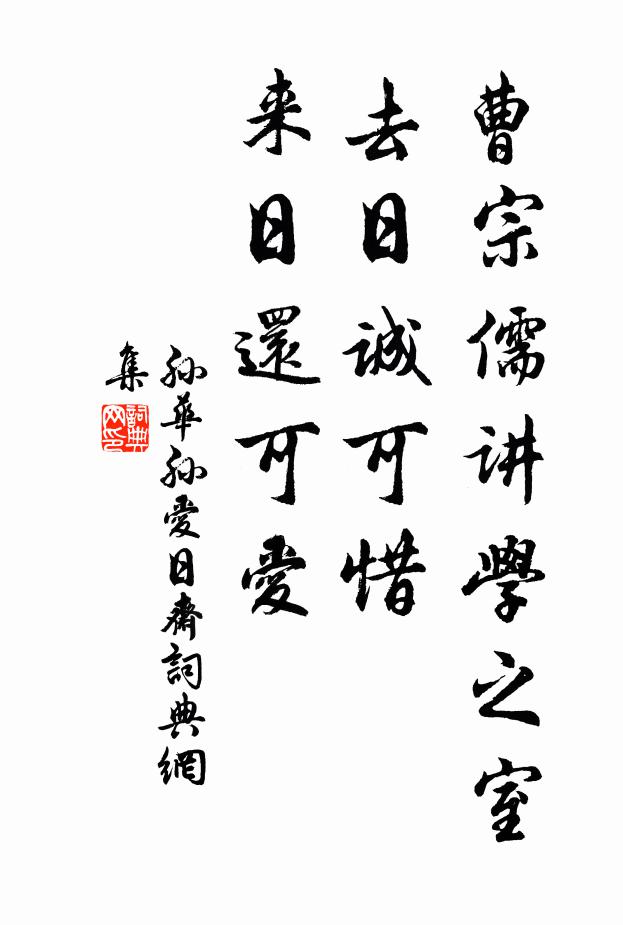 曹宗儒讲學之室
去日誠可惜
来日還可愛
孙華孙愛日齋詞典網
集
詞典网印